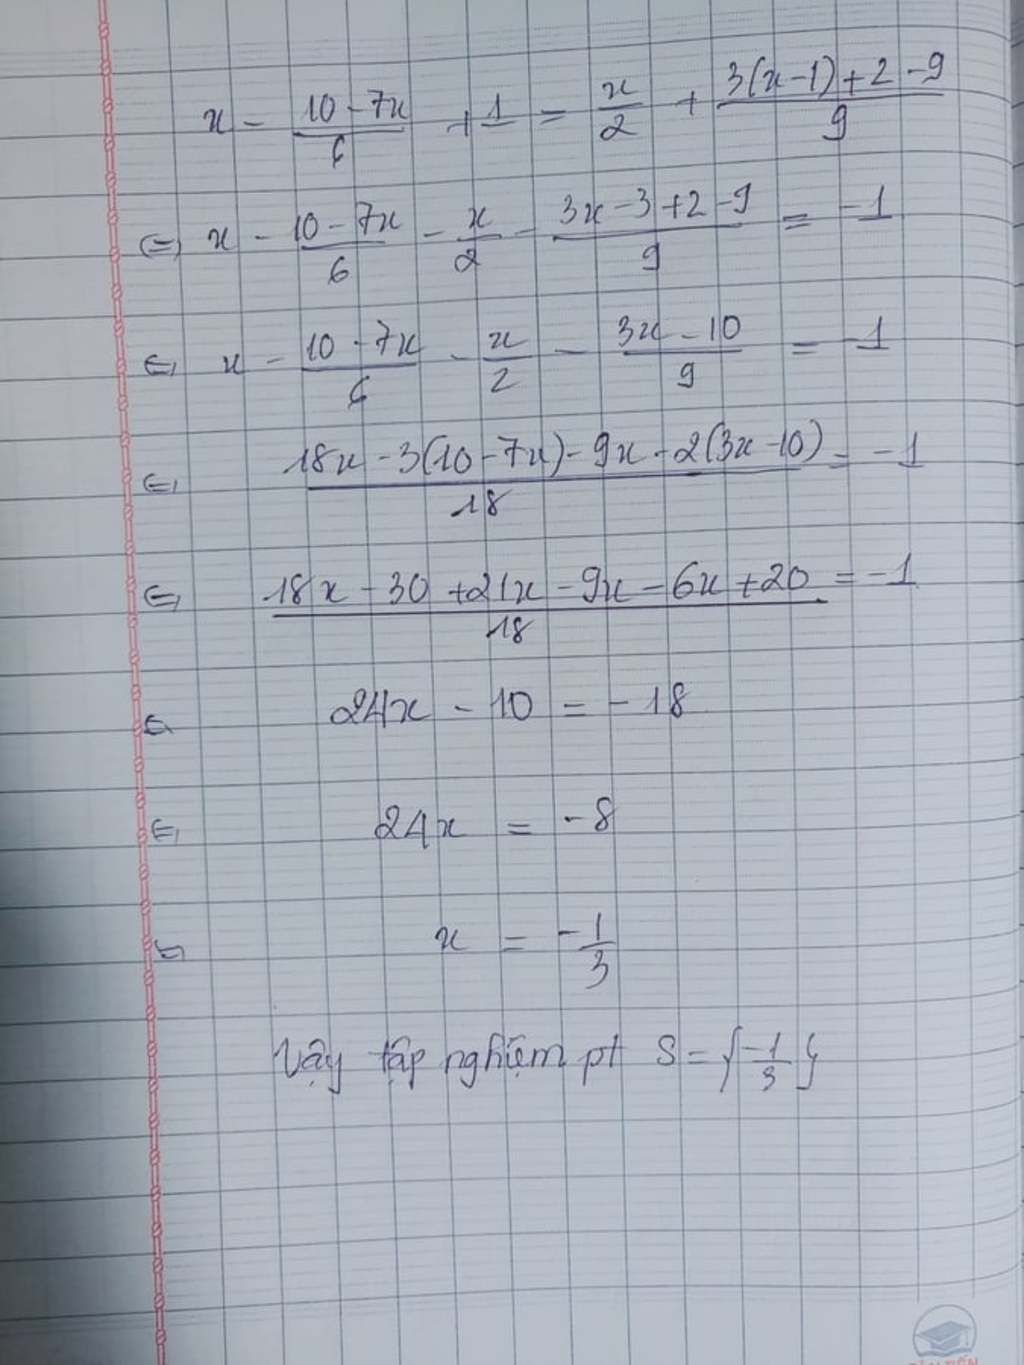 x - (10 - 7x)/6 + 1 = x/2 + (3(x - 1) + 2 - 9)/9
⇔ x - (10 - 7x)/6 - x/2 - (3x - 3 + 2 - 9)/9 = -1
⇔ x - (10 - 7x)/6 - x/2 - (3x - 10)/9 = -1
⇔ (18x - 3(10 - 7x) - 9x - 2(3x - 10))/18 = -1
⇔ (18x - 30 + 21x - 9x - 6x + 20)/18 = -1
⇔ 24x - 10 = -18
⇔ 24x = -8
⇔ x = -1/3
Vậy tập nghiệm pt S = {-1/3}